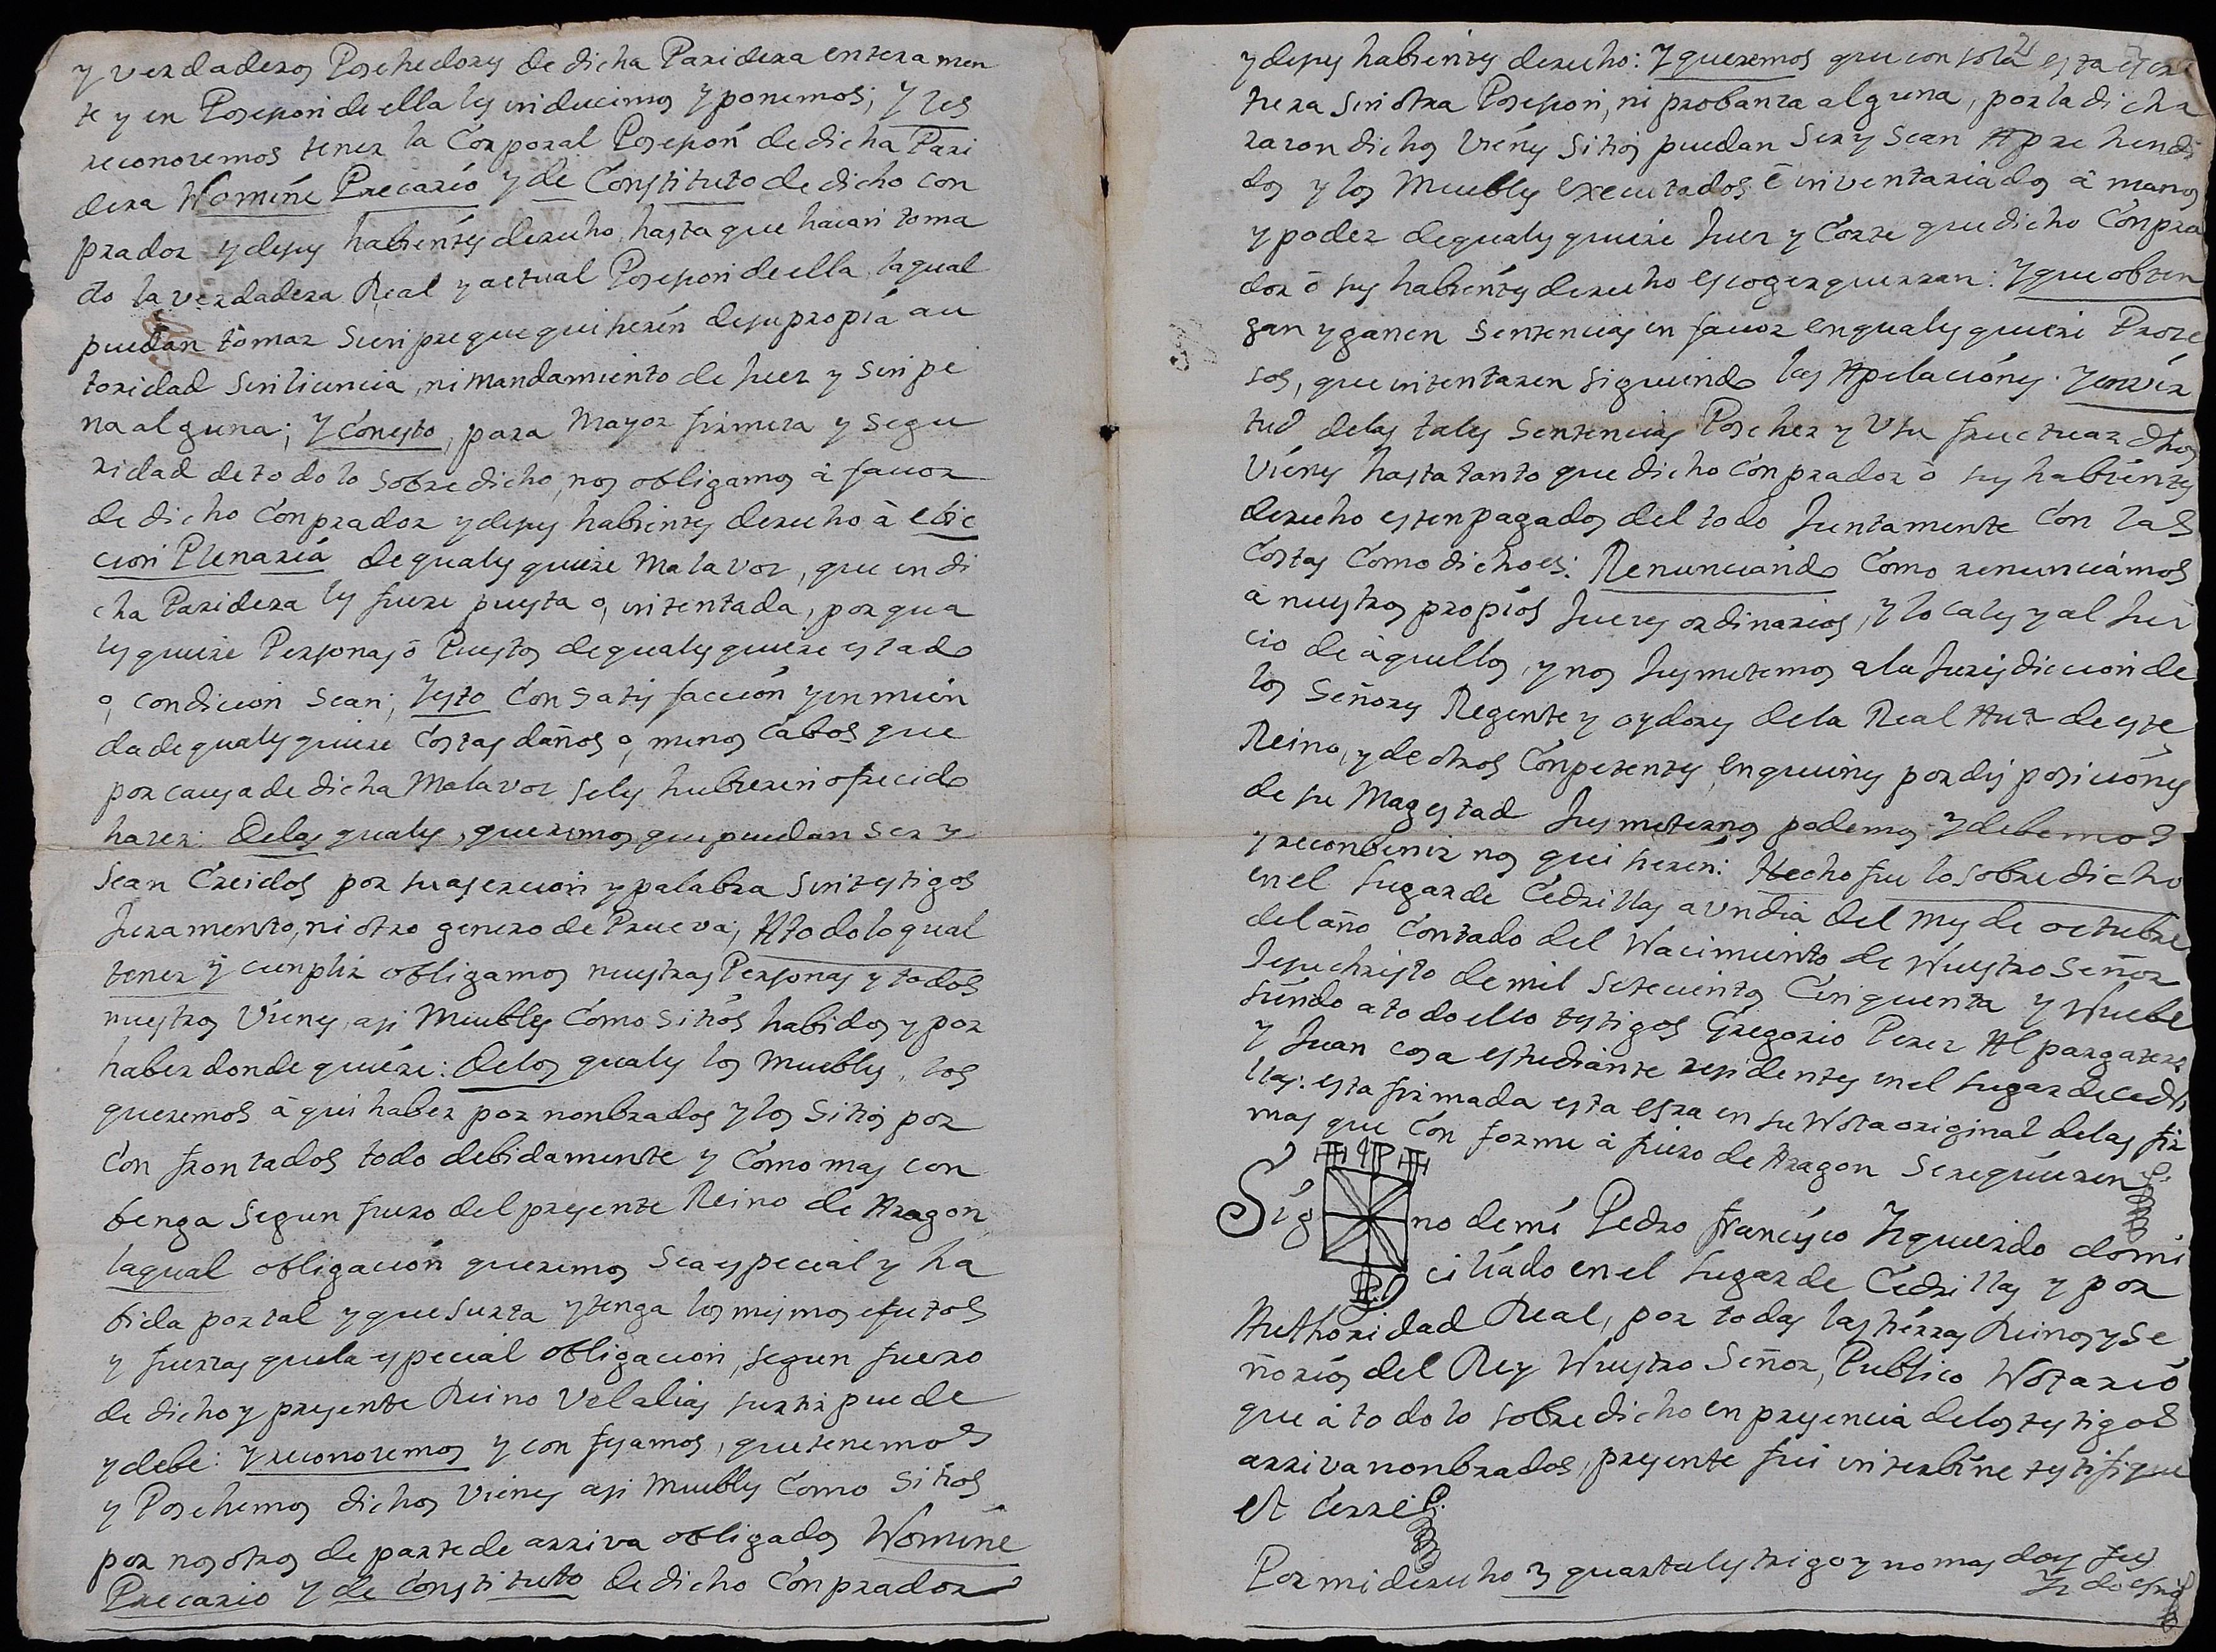 y verdaderos Posehedores de dicha Paridera entera men
te y en Posesion de ella les inducimos y ponemos; y les
reconozemos tener la Corporal Posesión de dicha Pari
dera Nomine Precario y de Constituto de dicho con
prador y de sus habientes derecho, hasta que haian toma
do la verdadera Real y actual Posesion de ella, la qual
puedan tomar Sienpre que quisieren de su propia au
toridad Sin licencia, ni Mandamiento de Juez y Sin pe
na alguna; Y Con esto, para Mayor firmeza y Segu
ridad de todo lo Sobredicho, nos obligamos à favor
de dicho Conprador y de sus habientes derecho à ebic
cion Plenaria de quales quiere Mala voz, que en di
cha Paridera les fuere puesta o, intentada, por qua
les quiere Personas ò Puestos de quales quiere estado
o, condicion Sean; Y esto Con Satisfacción y enmien
da de quales quiere Costas daños o, menos Cabos que
por causa de dicha Mala voz se les hubieren ofrecido
hazer: De las quales, queremos que puedan Ser y
Sean Creidos por su asercion y palabra Sin testigos
Juramento, ni otro genero de Prueva; A todo lo qual
tener y cunplir obligamos nuestras Personas y todos
nuestros Vienes, asi Muebles Como Sitios habidos y por
haber donde quiere: De los quales los Muebles, los
queremos à qui haber por nonbrados y los Sitios por
Con frontados todo debidamente y Como mas con
benga Segun fuero del presente Reino de Aragon
la qual obligación queremos Sea especial y ha
bida por tal y que Surta y tenga los mismos efectos
y fuerzas que la especial obligacion, segun fuero
de dicho y presente Reino Vel alias surtir puede
y debe: Y reconozemos y con fesamos, que tenemos
y Posehemos dichos Vienes asi Muebles Como Sitios
por nosotros de parte de arriva obligados Nomine
Precario y de Constituto de dicho Conprador
y de sus habientes derecho: Y queremos que con sola esta escri
tura Sin otra Posesion, ni probanza alguna, por la dicha
razon dichos Vienes Sitios puedan Ser y Sean Aprehendi
dos y los Muebles executados è inventariados à manos
y poder de quales quiere Juez y Corte que dicho Conpra
dor ò sus habientes derecho escoger querran: Y que obten
gan y ganen Sentencias en favor en quales quiere Proze
sos, que intentaren siguiendo las Apelaciones: Y en vir
tud de las tales Sentencias Poseher y Usu fructuar dhos
Vienes hasta tanto que dicho Conprador ò sus habientes
derecho esten pagados del todo Juntamente Con las
Costas Como dicho es: Renunciando Como renunciámos
à nuestros propios Juezes ordinarios, y lo cales y al Jui
cio de àquellos, y nos Jusmetemos a la Jurisdiccion de
los Señores Regente y oydores de la Real Aua de este
Reino, y de otros Conpetentes, en quienes por disposiciones
de su Magestad Jusmeternos podemos y debemos
y reconbenir nos quisieren: Hecho fue lo sobre dicho
en el Lugar de Cedrillas a un dia del mes de octubre
del año Contado del Nacimiento de Nuestro Señor
Jesuchristo de mil Setecientos Cinquenta y Nuebe
siendo a todo ello testigos Gregorio Perez Alpargatero
y Juan cosa estudiante residentes en el Lugar de cedri
llas: esta firmada esta esra en su Nota original de las fir
mas que Con forme à fuero de Aragon Se requieren
Sig no de mi Pedro francisco Yzquierdo domi
ciliado en el Lugar de Cedrillas y por
Authoridad Real, por todas las tierras Reinos y Se
ñorios del Rey Nuestro Señor, Publico Notario
que à todo lo sobredicho en presencia de los testigos
arriva nonbrados, presente fui interbine testifique
et Cerre
Por mi derecho 3 quartales trigo y no mas doy fee